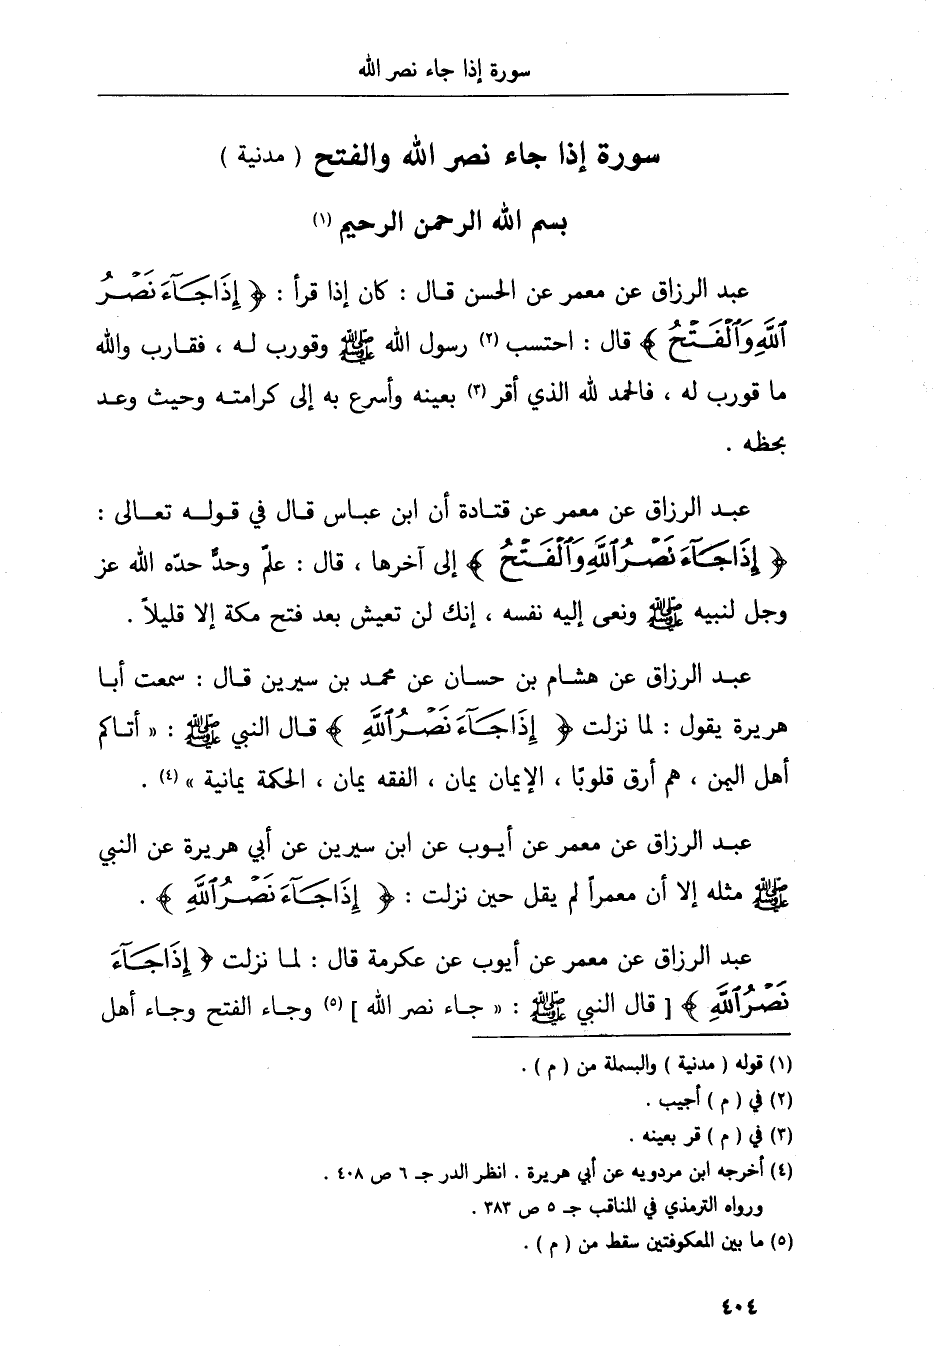 سورة إذا جاء نصر الله
سورة إذا جاء نصر الله والفتح ( مدنية )
بسم الله الرحمن الرحيم (١)
عبد الرزاق عن معمر عن الحسن قال : كان إذا قرأ : ﴿ إِذَا جَآءَ نَصۡرُ
ٱللَّهِ وَٱلۡفَتۡحُ ﴾ قال : احتسب (٢) رسول الله ﷺ وقورب له ، فقارب والله
ما قورب له ، فالحمد لله الذي أقر (٣) بعينه وأسرع به إلى كرامته وحيث وعد
بحظه .
عبد الرزاق عن معمر عن قتادة أن ابن عباس قال في قوله تعالى :
﴿ إِذَا جَآءَ نَصۡرُ ٱللَّهِ وَٱلۡفَتۡحُ ﴾ إلى آخرها ، قال : علمّ وحدٌّ حدّه الله عز
وجل لنبيه ﷺ ونعى إليه نفسه ، إنك لن تعيش بعد فتح مكة إلا قليلاً .
عبد الرزاق عن هشام بن حسان عن محمد بن سيرين قال : سمعت أبا
هريرة يقول : لما نزلت ﴿ إِذَا جَآءَ نَصۡرُ ٱللَّهِ ﴾ قال النبي ﷺ : « أتاكم
أهل اليمن ، هم أرق قلوبًا ، الإيمان يمان ، الفقه يمان ، الحكمة يمانية » (٤) .
عبد الرزاق عن معمر عن أيوب عن ابن سيرين عن أبي هريرة عن النبي
ﷺ مثله إلا أن معمراً لم يقل حين نزلت : ﴿ إِذَا جَآءَ نَصۡرُ ٱللَّهِ ﴾ .
عبد الرزاق عن معمر عن أيوب عن عكرمة قال : لما نزلت ﴿ إِذَا جَآءَ
نَصۡرُ ٱللَّهِ ﴾ [ قال النبي ﷺ : « جاء نصر الله ] (٥) وجاء الفتح وجاء أهل
(١) قوله ( مدنية ) والبسملة من ( م ) .
(٢) في ( م ) أجيب .
(٣) في ( م ) قر بعينه .
(٤) أخرجه ابن مردويه عن أبي هريرة . انظر الدر جـ ٦ ص ٤٠٨ .
ورواه الترمذي في المناقب جـ ٥ ص ٣٨٣ .
(٥) ما بين المعكوفتين سقط من ( م ) .
٤٠٤